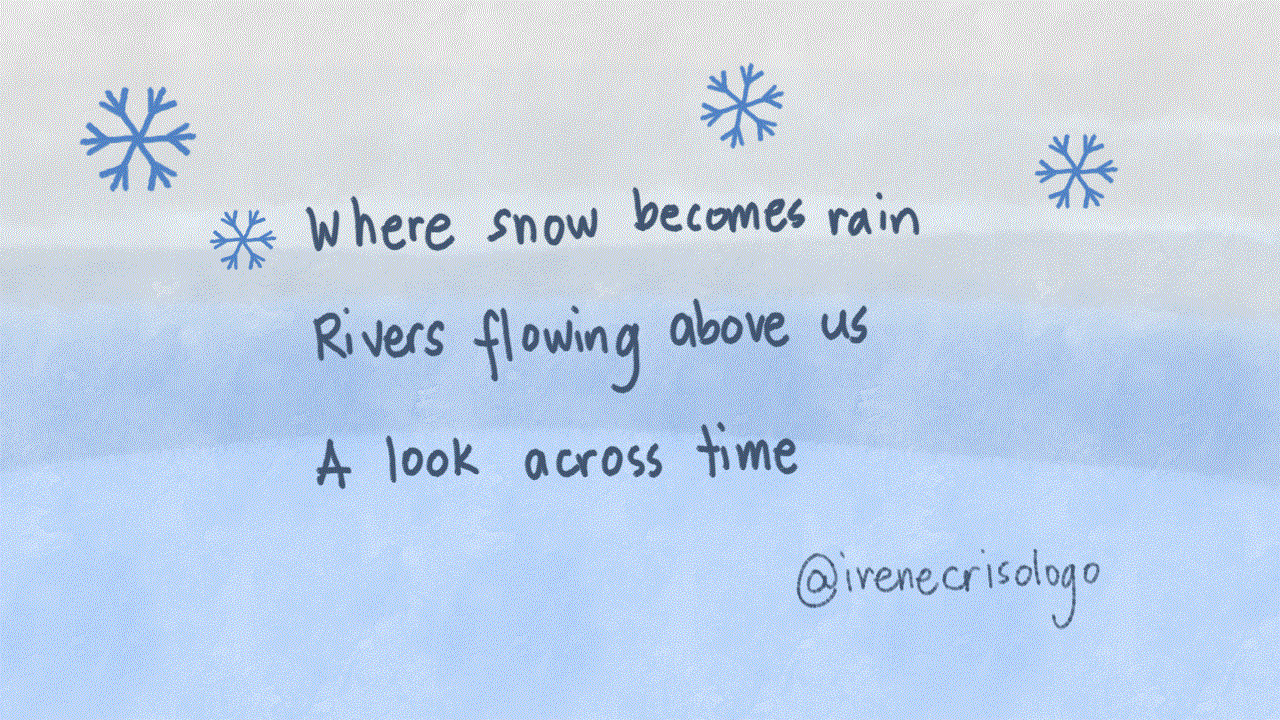 Where snow becomes rain
Rivers flowing above us
A look across time
@irenecrisologo